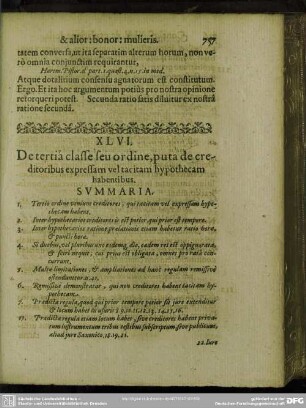 & alior: honor: mulieris. 757
tatem conversa, ut ita separatim alterum horum, non verò omnia conjunctim requirantur,
Atque dotalitium consensu agnatorum est constitutum.
Ergo. Et ita hoc argumentum potiùs pro nostra opinione
retorqueri potest. Secunda ratio satis diluitur ex nostrâ
ratione secundâ.
XLVI.
De tertiâ classe seu ordine, puta de creditoribus expressam vel tacitam hypothecam
habentibus.
SVMMARIA.
1. Tertio ordine veniunt creditores, qui tacitam vel expressam hypothecam habent.
2. Inter hypothecarios creditores is est potior, qui prior est tempore.
3. Inter hypothecarios ratione prælationis etiam habetur ratio horæ,
& puncti horæ.
4. Si duobus, vel pluribus uno eodemq; die, eadem res est oppignorata,
& sciri nequit, cui prius sit obligata, omnes pro rata concurrunt.
5. Multæ limitationes, & ampliationes ad hanc regulam remissivè
6. Remissivè demonstratur, qui nam creditores habent tacitam hypothecam.
7. Prædicta regula, quod qui prior tempore potior sit jure extenditur
& locum habet in
11. Prædicta regula etiam locum habet, sive creditores habeant privatum instrumentum tribus testibus subscriptum, sive publicum,
aliud jure Saxonico. 18. 19. 21.
22. Iure